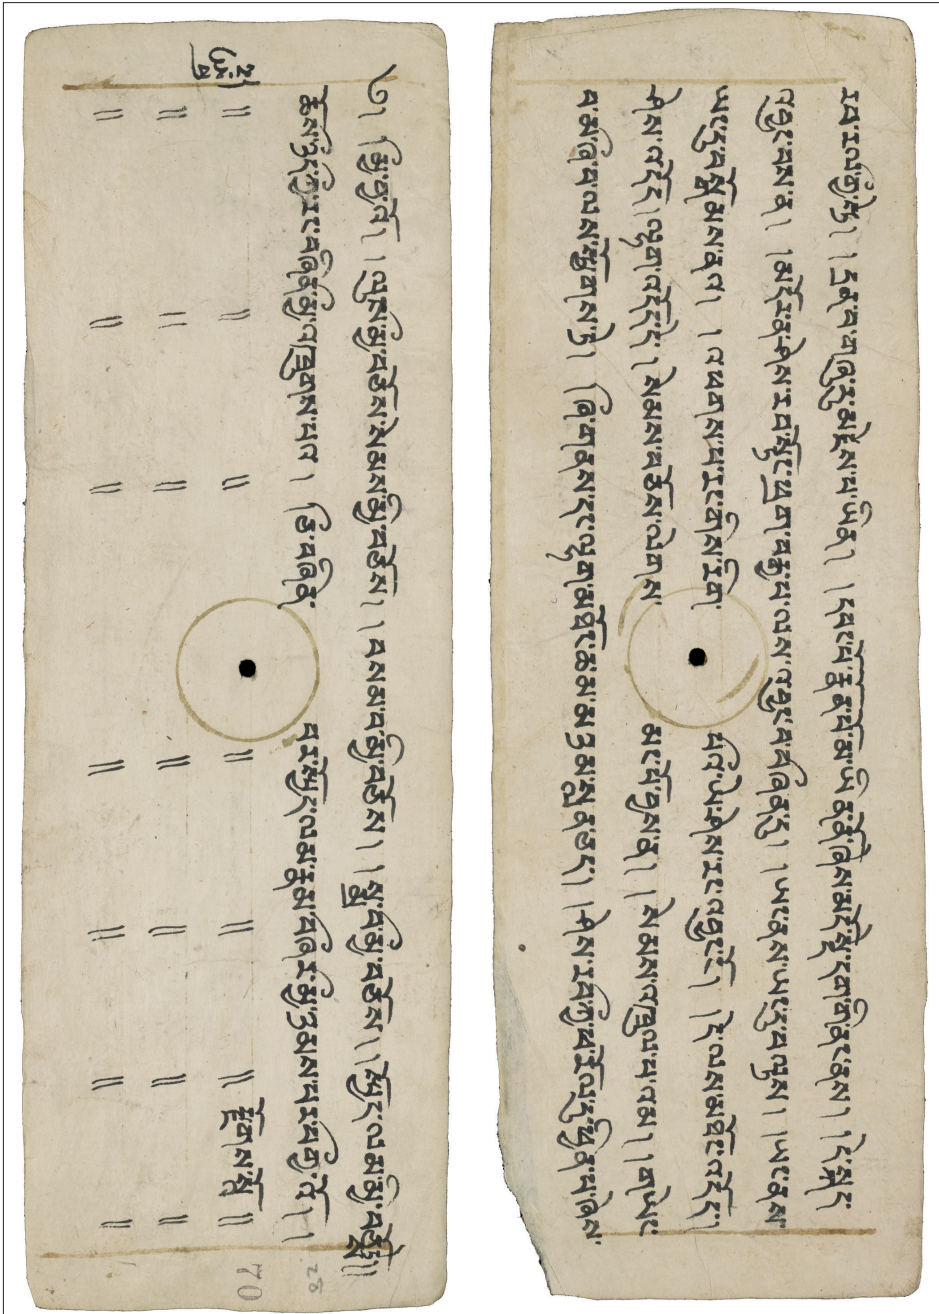 རབ་རལ་གྱི་སྟེ། །དྲན་བ་གཞུང་དུ་མ་ངེས་པ་ཡིན། །དཔང་མ་ཡིན་ནོ་ཞེས་མདོ་སྡེ་དག་གི་ནང་ནས། །དེ་སྐད་
འབྱུང་བས་ན། །མདོར་ན་ཤེས་རབ་སྟོང་ཕྲག་བརྒྱ་པ་ལས་འབྱུང་བ་བཞིན་དུ། །ཡང་ནས་ཡང་དུ་བལྟས། །ཡང་ནས་
ཡང་དུ་བསྒོམས་ནའ། །འཕགས་པ་རང་གིས་རིག་པའི་ཡེ་ཤེས་རང་འབྱུང་ངོ། །དེ་ལས་མཐོང་འདོད།
ཤེས་འདོད། ལྷག་འདོད་དེ། །སེམས་བཅོས་ལེགས་མང་པོ་བྱས་ན། །སེམས་འཁྲུལ་པ་འམ། །གཡེང་
བ་མ་ཞི་བ་ལས་སྩོགས་ཏེ། །ཞི་གནས་དང་ལྷག་མཐོང་ཉམས་ །ཤེས་རབ་ཀྱི་ཕ་རོལ་དུ་ཕྱིན་པ་ཞེས་
༄། །མྱི་བྱའོ། །ལུས་མྱི་བཅོས་སེམས་མྱི་བཅོས། །བསམ་བ་མྱི་བཅོས། །སྨྲ་བ་མྱི་བཅོས། །སྤྱོད་ལམ་མྱི་བཅོས།།
ཆོས་ཉིད་ཀྱི་རང་བཞིན་མྱི་འཕྲུགས་པར། ཅི་བཞིན་བར་སྤྱོད་ལམ་རྣམ་བཞིར་མྱི་ཉམས་པར་བགྱིའོ།།
རྫོགས་སྷོ།།
70
28